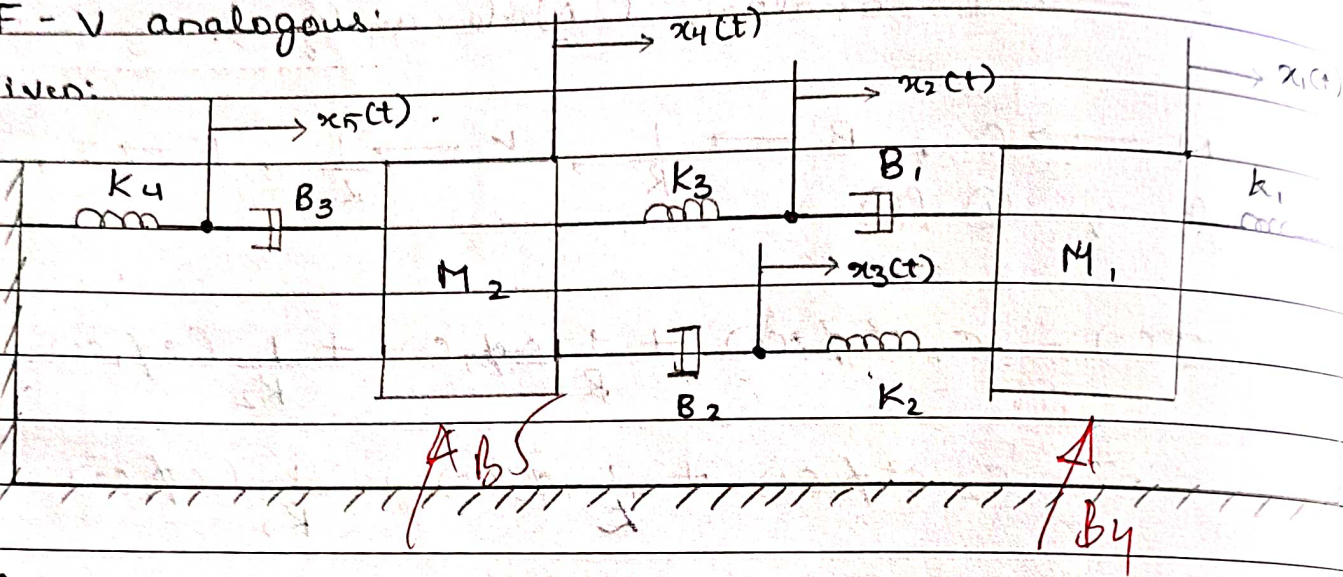 F - V analogous:
iven:
x4(t)
x2(t)
x1(t)
x5(t) .
K4
B3
K3
B1
k1
M2
x3(t)
M1
B2
K2
B5
B4